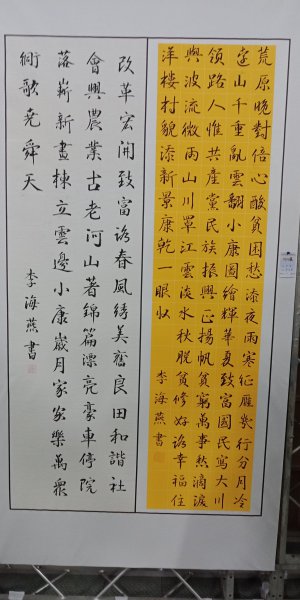 荒原晚對倍心酸貧困愁添夜雨寒征雁幾行分月冷
空山千重亂雲翻小康圖繪輝華夏致富國民寫大川
領路人惟共產黨民族振興正揚帆貧窮萬事愁滴淚
興波流微雨山川罩江雲淡水秋脫貧修好路幸福住
洋楼村貌添新景康乾一眼收
李海燕書
改革宏開致富路春風綉美舊良田和諧社
會興農業古老河山著錦篇漂亮豪車停院
落嶄新畫棟立雲邊小康歲月家家樂萬衆
衕歌堯舜天
李海燕書